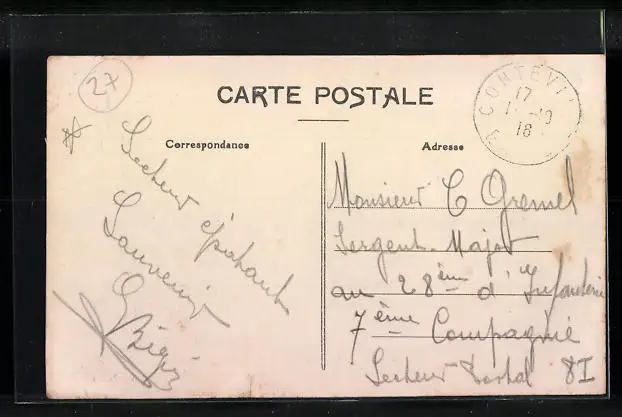 27
CARTE POSTALE
CONTEVI
17
18
Correspondance
Adresse
Secteur épatant
Souvenir
Bégis
Monsieur C Gremel
Sergent-Major
au 28ème d'Infanterie
7ème Compagnie
Secteur Postal 8I